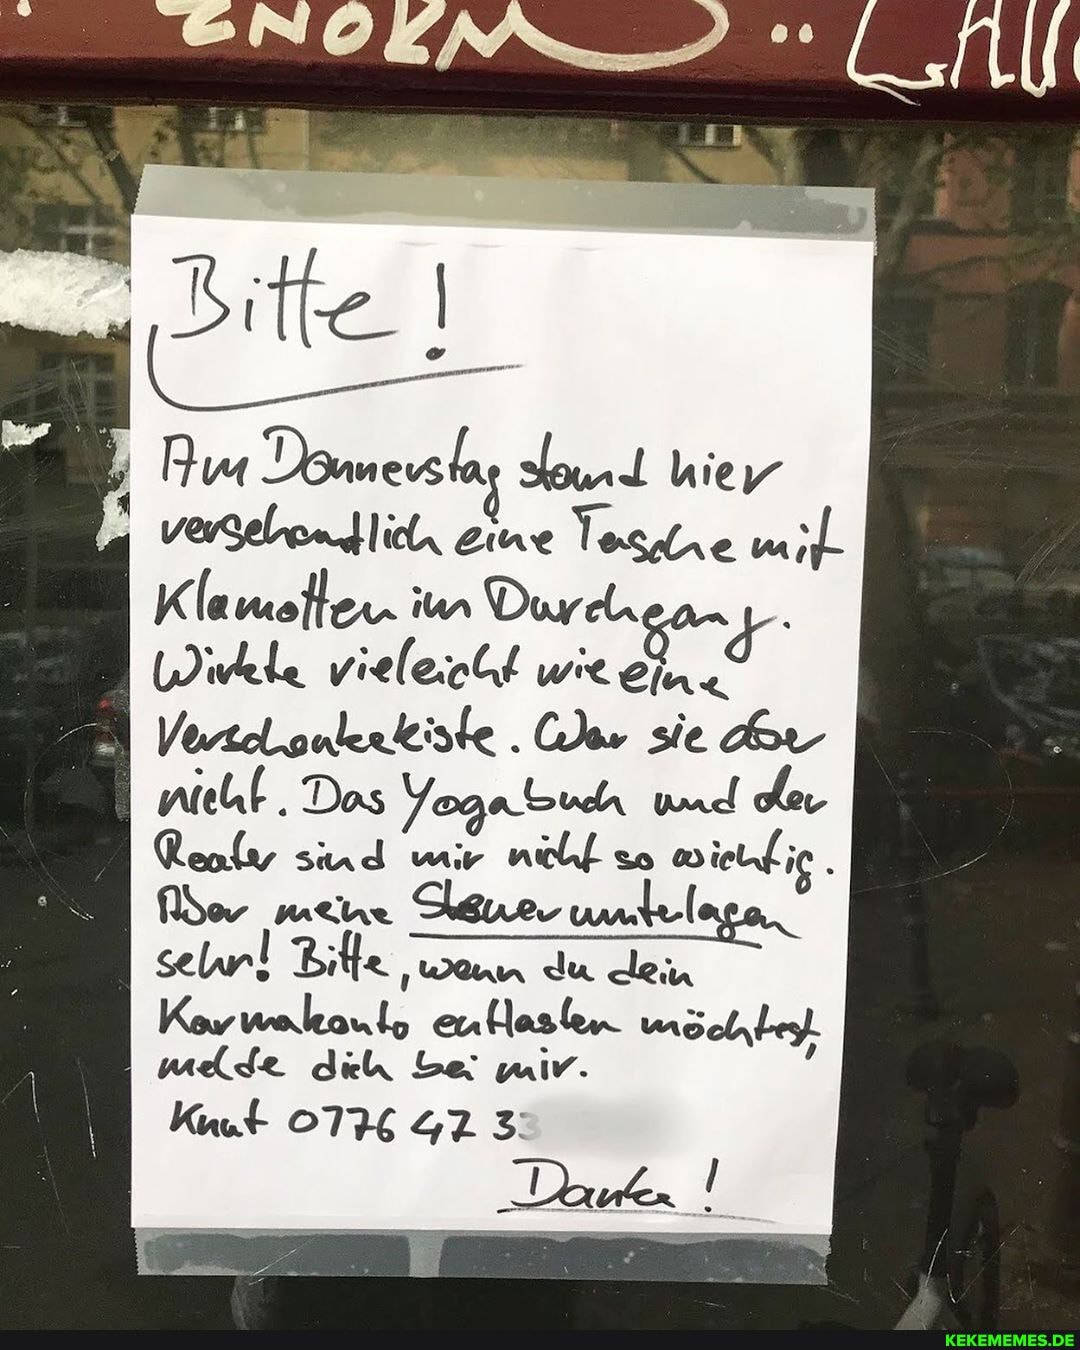 ENORM ..
Bitte!
Am Donnerstag stand hier
versehentlich eine Tasche mit
Klamotten im Durchgang.
Wirkte vieleicht wie eine
Verschenkekiste. War sie aber
nicht. Das Yogabuch und der
Reater sind mir nicht so wichtig.
Aber meine Steuerunterlagen
sehr! Bitte, wenn du dein
Karmakonto entlasten möchtest,
melde dich bei mir.
Knut 0776 47 33
Danke!
KEKEMEMES.DE